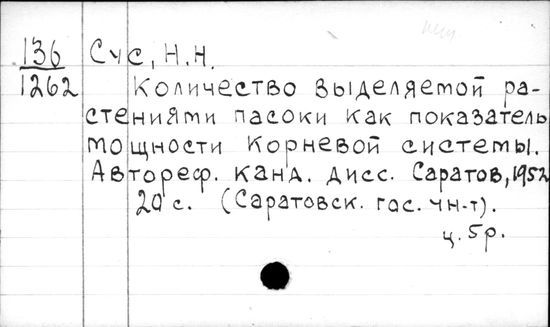 136 Сус, Н.Н.
1262 Количество выделяемой ра-
стениями пасоки как показатель
мощности корневой системы.
Автореф. канд. дисс. Саратов, 1952
20 с. (Саратовск. гос. ун-т).
ц. 5р.